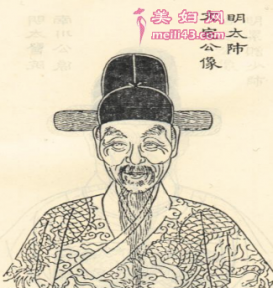 美妇网
meili43.com
明太師
公像